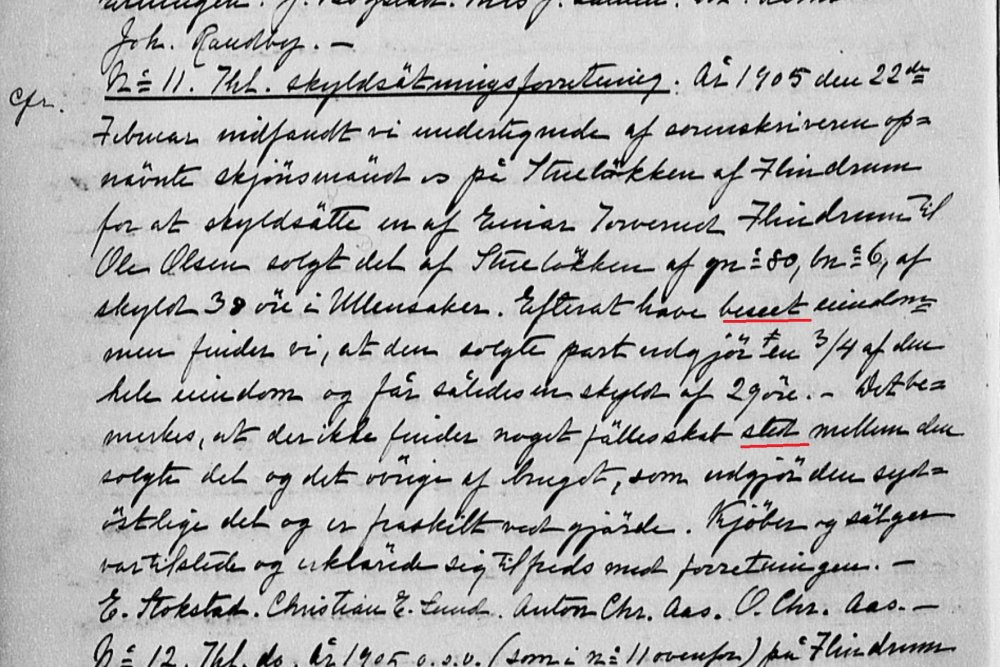 Joh. Raudby. —
cfr. No 11. Thl. skyldsätningsforretning. År 1905 den 22de
Februar indfandt vi undertegnede af sorenskriveren op=
nävnte skjönsmänd os på Stueløkken af Flindrum
for at skyldsätte en af Einar Torvernd Flindrum til
Ole Olsen solgt del af Stueløkken af gn o 80, bn o 6, af
skyld 38 öre i Ullensaker. Efterat have beseet eiendom=
men finder vi, at den solgte part udgjör en 3/4 af den
hele eiendom og får således en skyld af 29 öre. — Det be=
merkes, at der ikke finder noget fällesskab sted mellem den
solgte del og det övrige af bruget, som udgjör den syd=
östlige del og er fraskilt ved gjärde. Kjöber og sälger
var tilstede og erklärede sig tilfreds med forretningen. —
E. Stokstad. Christian E. Lund. Anton Chr. Aas. O. Chr. Aas. —
No 12. Thl. do. År 1905 o.s.v. (som i no 11 ovenfor) på Flindrum